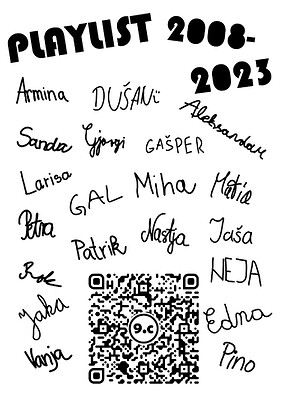 PLAYLIST 2008-
2023
Armina
DUŠANi
Aleksandar
Sandra
Gjorgi
GAŠPER
Larisa
GAL
Miha
Matija
Petra
Patrik
Nastja
Jaša
Rok
NEJA
Jaka
9.c
Edna
Vanja
Pino